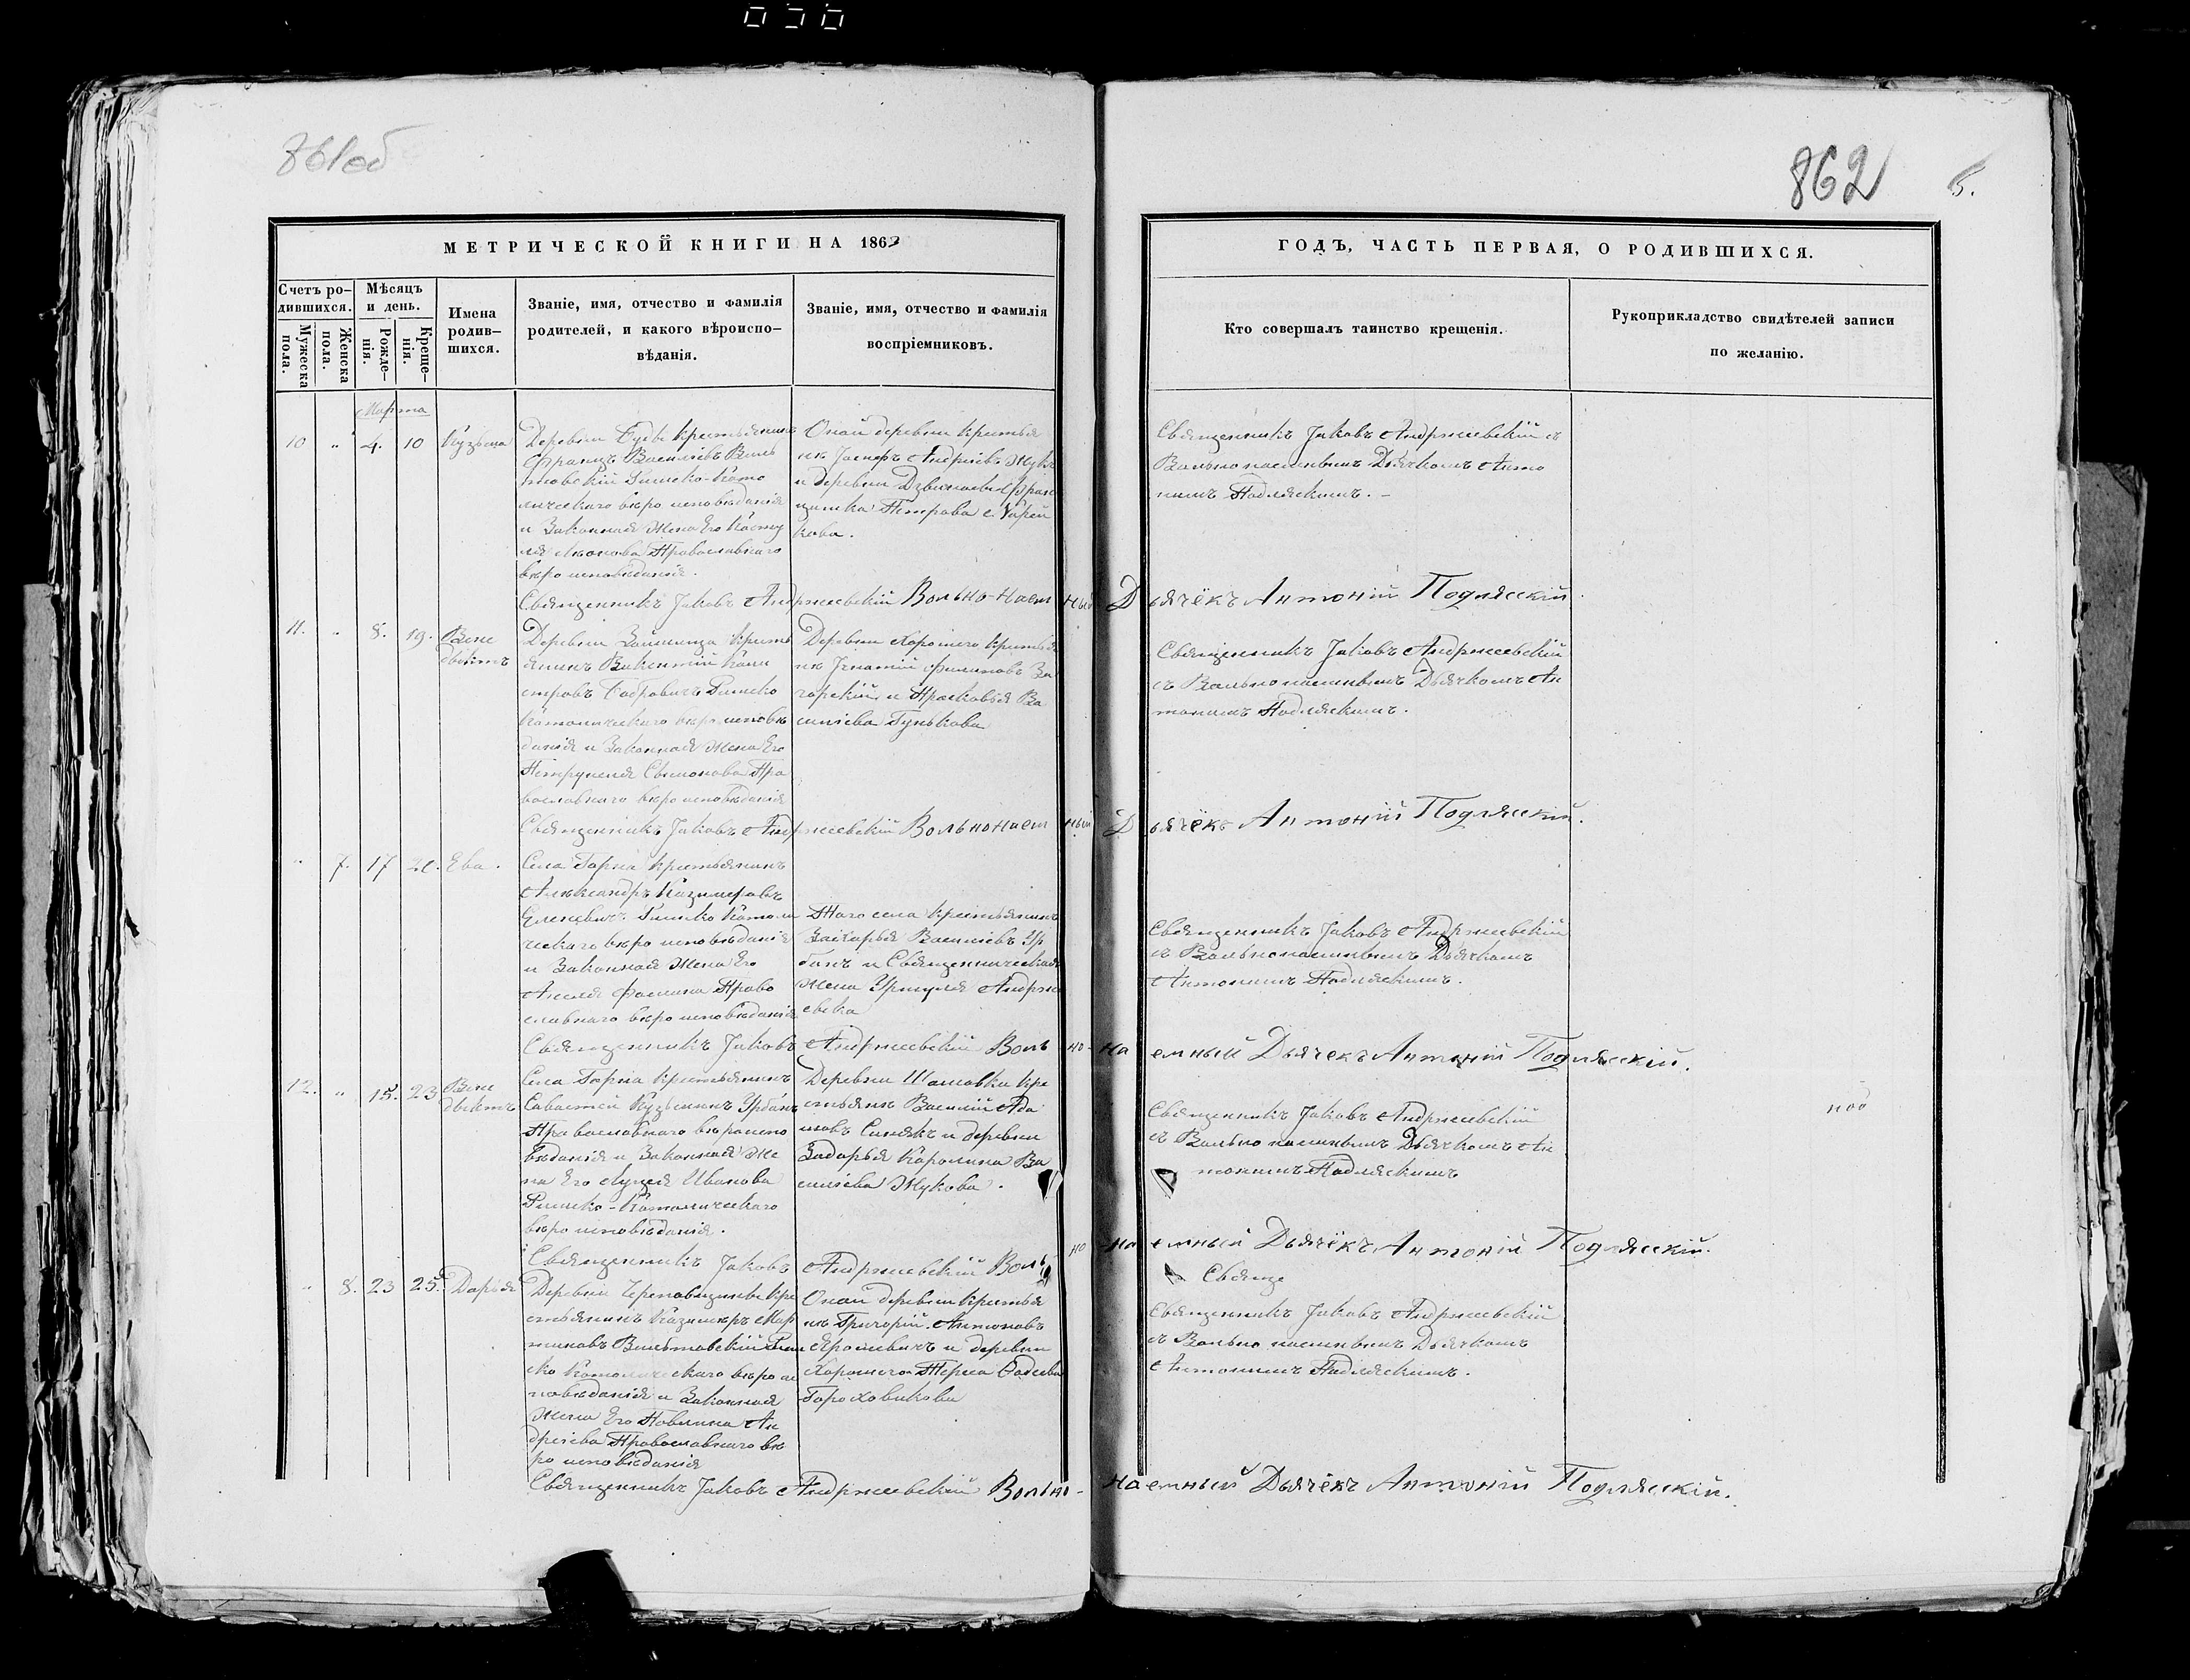 861об
862
5.
МЕТРИЧЕСКОЙ КНИГИ НА 186
ГОДЪ, ЧАСТЬ ПЕРВАЯ, О РОДИВШИХСЯ.
Счетъ ро-
дившихся.
Мужеска пола.
Женска пола.
Мѣсяцъ
и день.
Рожде-
нія.
Креще-
нія.
Имена
родив-
шихся.
Званіе, имя, отчество и фамилія
родителей, и какого вѣроиспо-
вѣданія.
Званіе, имя, отчество и фамилія
воспріемниковъ.
Кто совершалъ таинство крещенія.
Рукоприкладство свидѣтелей записи
по желанію.
Марта
10 " 4. 10 Кузьма
Деревни крестьянинъ
Францъ Васильевъ
Римско-Като
лическаго вѣроисповѣданія
и Законная Жена Его
Православнаго
вѣроисповѣданія.
Оной деревни крестья
нъ Андреевъ Жукъ
и деревни Фран
цишка Петрова
кова.
Священникъ Іаковъ Андржеевскій съ
Вольнонаемнымъ Дьячкомъ Анто
ніемъ Подляскимъ. -
Священникъ Іаковъ Андржеевскій Вольно-наемный Дьячёкъ Антоній Подляскій
11. " 8. 19. Вене
дыктъ
Деревни крестъ
янинъ Викентій Кази
меровъ Римско
Католическаго вѣроисповѣ
данія и Законная Жена Его
Петрунеля Сымонова Пра
вославнаго вѣроисповѣданія
Деревни Хорошего крестья
нъ Игнатій Филиповъ За
горскій и Прасковья Ва
сильева Гунькова
Священникъ Іаковъ Андржеевскій
съ Вольнонаемнымъ Дьячкомъ Ан
тоніемъ Подляскимъ.
Священникъ Іаковъ Андржеевскій Вольнонаемный Дьячёкъ Антоній Подляскій.
" 7. 17 Ева.
Села Горна крестьянинъ
Александръ Казимеровъ
Римско Католи
ческаго вѣроисповѣданія
и Законная Жена Его
Анеля Фомина Право
славнаго вѣроисповѣданія
Того села крестьянинъ
Захарья Васильевъ Ур
банъ и Священническая
жена Уршуля Андрже
евска
Священникъ Іаковъ Андржеевскій
съ Вольнонаемнымъ Дьячкомъ
Антоніемъ Подляскимъ.
Священникъ Іаковъ Андржеевскій Вольно-наемный Дьячекъ Антоній Подляскій.
12. " 15. 23 Вене
дыктъ
Села Горна крестьянинъ
Савастей Кузьминъ Урбанъ
Православнаго вѣроиспо
вѣданія и Законная Же
на Его Луцея Иванова
Римско-Католическаго
вѣроисповѣданія.
Деревни Шамовки кре
стьянъ Василій Ада
мовъ Синякъ и деревни
Задорья Каролина Ва
сильева Жукова.
Священникъ Іаковъ Андржеевскій
съ Вольнонаемнымъ Дьячкомъ Ан
тоніемъ Подляскимъ
Священникъ Іаковъ Андржеевскій Вольно-наемный Дьячёкъ Антоній Подляскій.
" 8. 23 25. Дарья
Деревни Череповщины кре
стьянинъ Казимеръ Мар
тиновъ Вильтовскій Рим
ско Католическаго вѣроис
повѣданія и Законная
Жена Его Павлина Ан
дреева Православнаго вѣ
роисповѣданія
Оной деревни крестья
нъ Григорій Антоновъ
и деревни
Хорошего Тереса Фадеева
Гороховикова
Свяще
Священникъ Іаковъ Андржеевскій
съ Вольно наемнымъ Дьячкомъ
Антоніемъ Подляскимъ.
Священникъ Іаковъ Андржеевскій Вольно-наемный Дьячёкъ Антоній Подляскій.